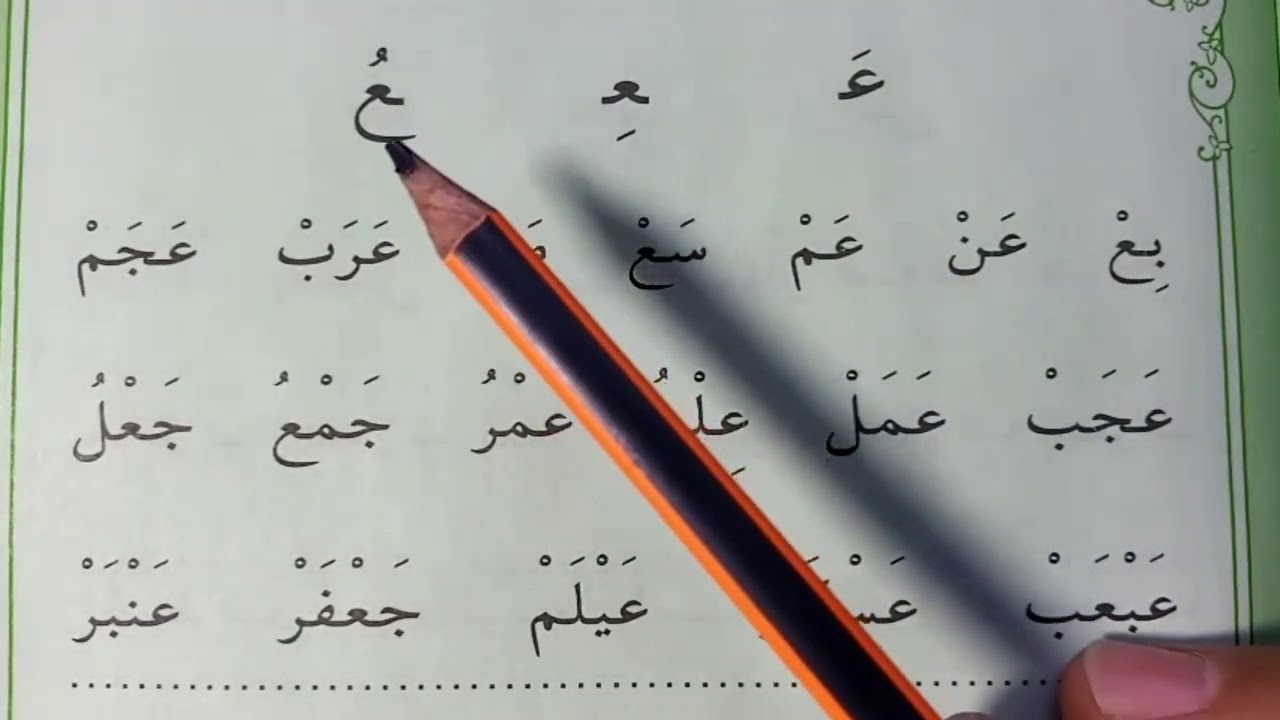 عَـ ـعِـ ـعُ
بِعْ عَنْ عَمْ سَعْ عَرَبْ عَجَمْ
عَجَبْ عَمَلْ عَمْرُ جَمْعُ جَعْلُ
عَبْعَبْ عَيْلَمْ جَعْفَرْ عَنْبَرْ